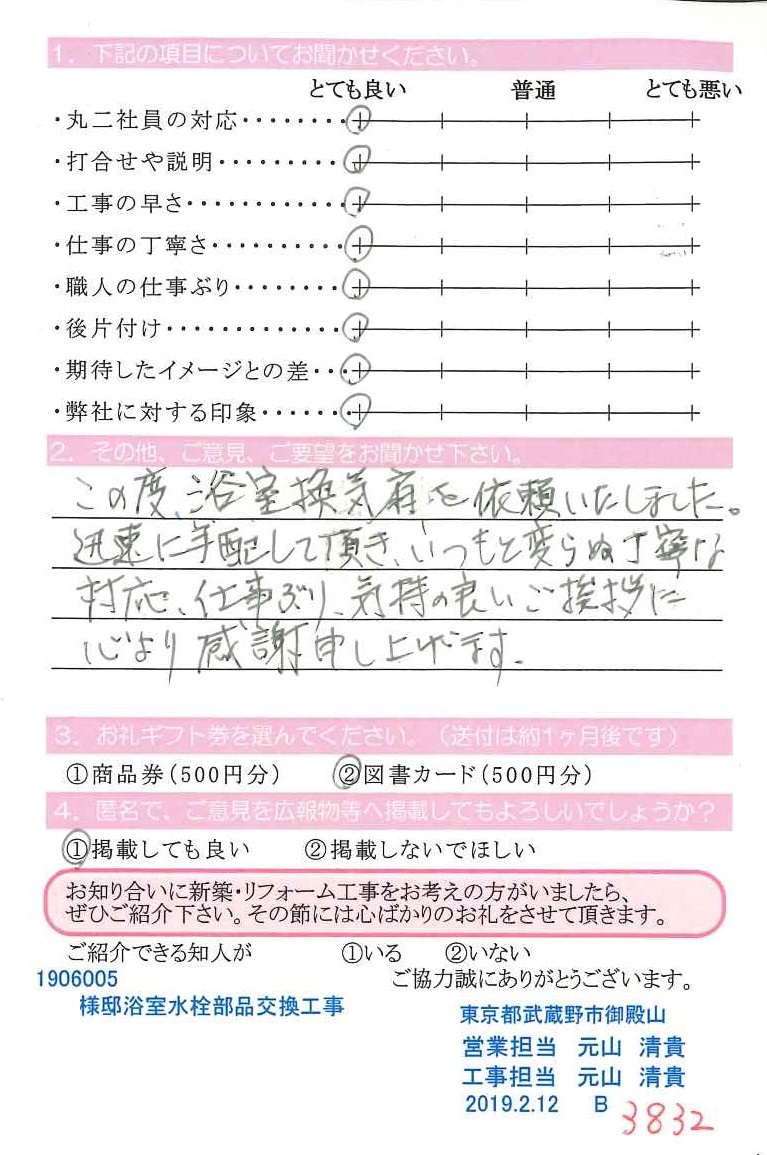 1. 下記の項目についてお聞かせください。
とても良い 普通 とても悪い
・丸二社員の対応・・・・・・・・
・打合せや説明・・・・・・・・・
・工事の早さ・・・・・・・・・・・
・仕事の丁寧さ・・・・・・・・・
・職人の仕事ぶり・・・・・・・・
・後片付け・・・・・・・・・・・・
・期待したイメージとの差・・・
・弊社に対する印象・・・・・・
2. その他、ご意見、ご要望をお聞かせ下さい。
この度、浴室換気扇を依頼いたしました。
迅速に手配して頂き、いつもと変らぬ丁寧な
対応、仕事ぶり、気持の良いご挨拶に
心より感謝申し上げます。
3. お礼ギフト券を選んでください。(送付は約1ヶ月後です)
①商品券(500円分) ②図書カード(500円分)
4. 匿名で、ご意見を広報物等へ掲載してもよろしいでしょうか?
①掲載しても良い ②掲載しないでほしい
お知り合いに新築・リフォーム工事をお考えの方がいましたら、
ぜひご紹介下さい。その節には心ばかりのお礼をさせて頂きます。
ご紹介できる知人が ①いる ②いない
1906005 ご協力誠にありがとうございます。
様邸浴室水栓部品交換工事
東京都武蔵野市御殿山
営業担当 元山 清貴
工事担当 元山 清貴
2019.2.12 B
3832